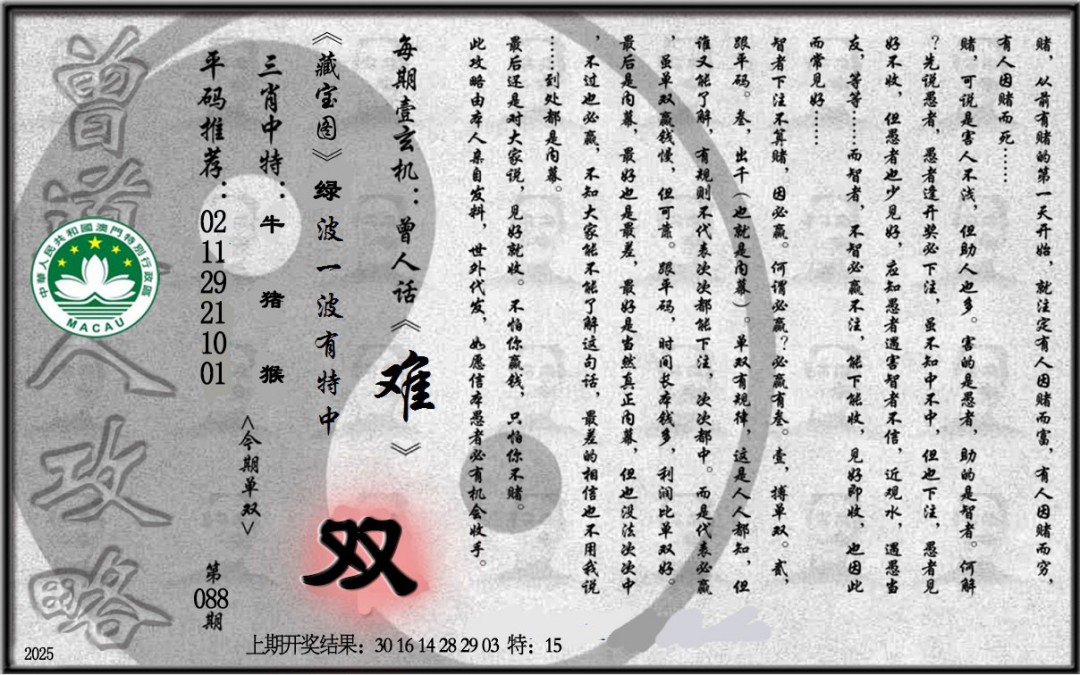 赌，从前有赌的第一天开始，就注定有人因赌而富，有人因赌而穷，
有人因赌而死……
赌，可说是害人不浅，但助人也多。害的是愚者，助的是智者。何解
？先说愚者，愚者逢开奖必下注，虽不知中不中，但也下注，愚者见
好不收，但愚者也少见好，应知愚者遇害智者不信，近观水，遇愚当
友，等等……而智者，不智必赢不注，能下能收，见好即收，也因此
而常见好……
智者下注不算赌，因必赢。何谓必赢？必赢有叁。壹，搏单双。贰，
跟平码。叁，出千（也就是内幕）。单双有规律，这是人人都知，但
谁又能了解，有规则不代表次次都能下注，次次都中。而是代表必赢
，虽单双赢钱慢，但可靠。跟平码，时间长本钱多，利润比单双好。
最后是内幕，最好也是最差，最好是当然真正内幕，但也没法次次中
，不过也必赢，不知大家能不能了解这句话，最差的相信也不用我说
……到处都是内幕。
最后还是对大家说，见好就收。不怕你赢钱，只怕你不赌。
此攻略由本人亲自发料，世外代发，如愿信本愚者必有机会收手。
每期壹玄机：曾人话《难》
《藏宝图》绿波一波有特中
双
三肖中特：牛 猪 猴
<今期单双>
平码推荐：02 11 29 21 10 01
第088期
曾道人攻略
中華人民共和國澳門特別行政區
MACAU
2025
上期开奖结果：30 16 14 28 29 03 特：15